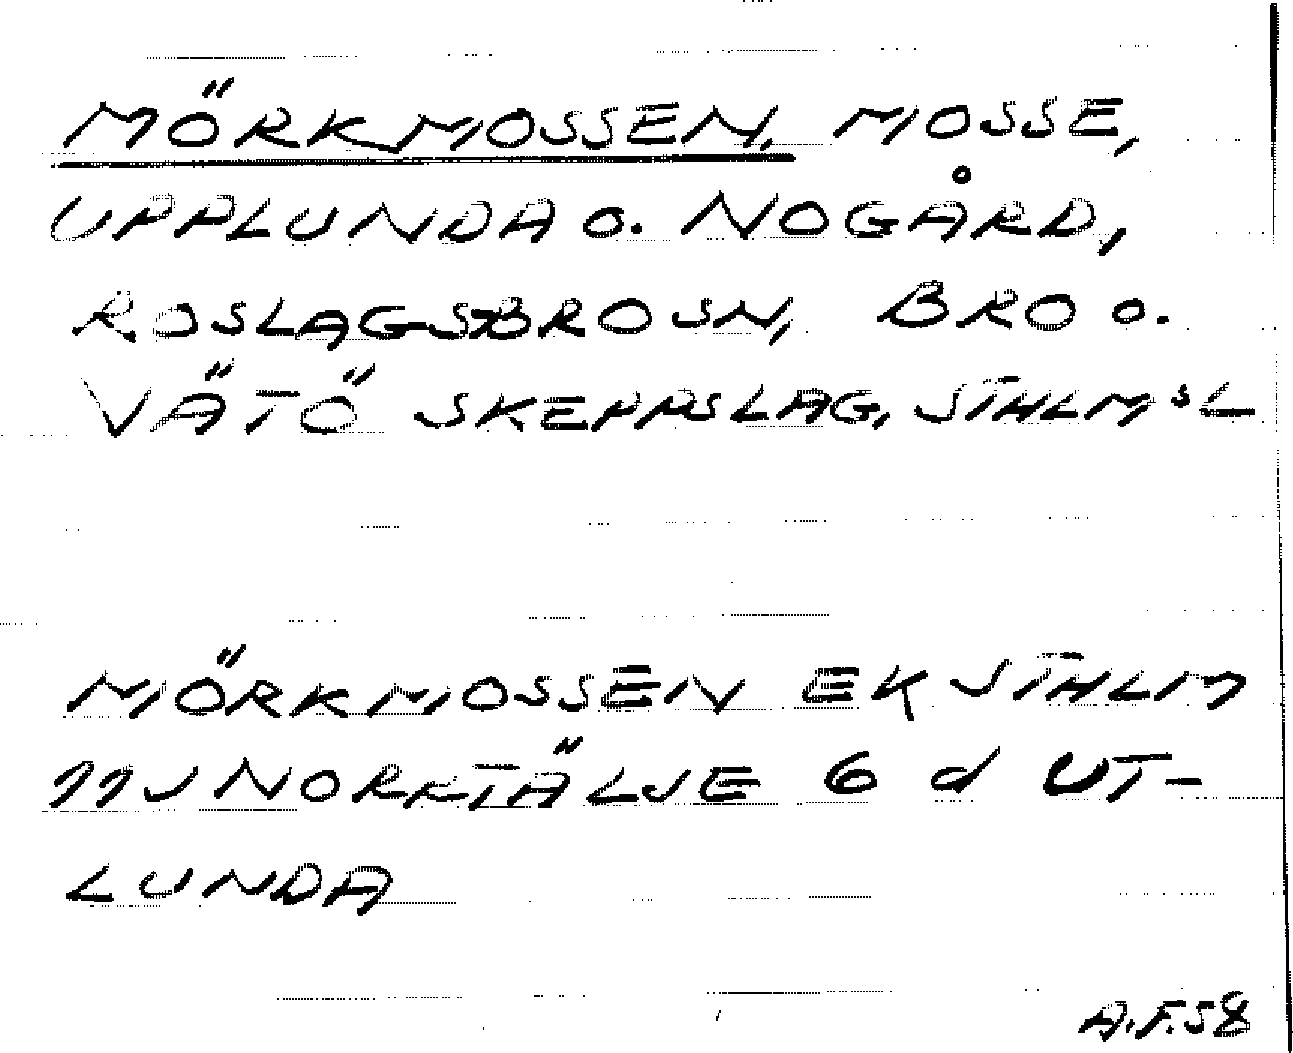 MÖRKMOSSEN, MOSSE,
UPPLUNDA o. NOGÅRD,
ROSLAGSBROSN, BRO o.
VÄTÖ SKEPPSLAG, STHLMSL
MÖRKMOSSEN EK STHLM
11J NORRTÄLJE 6 d UT-
LUNDA
A.F.58